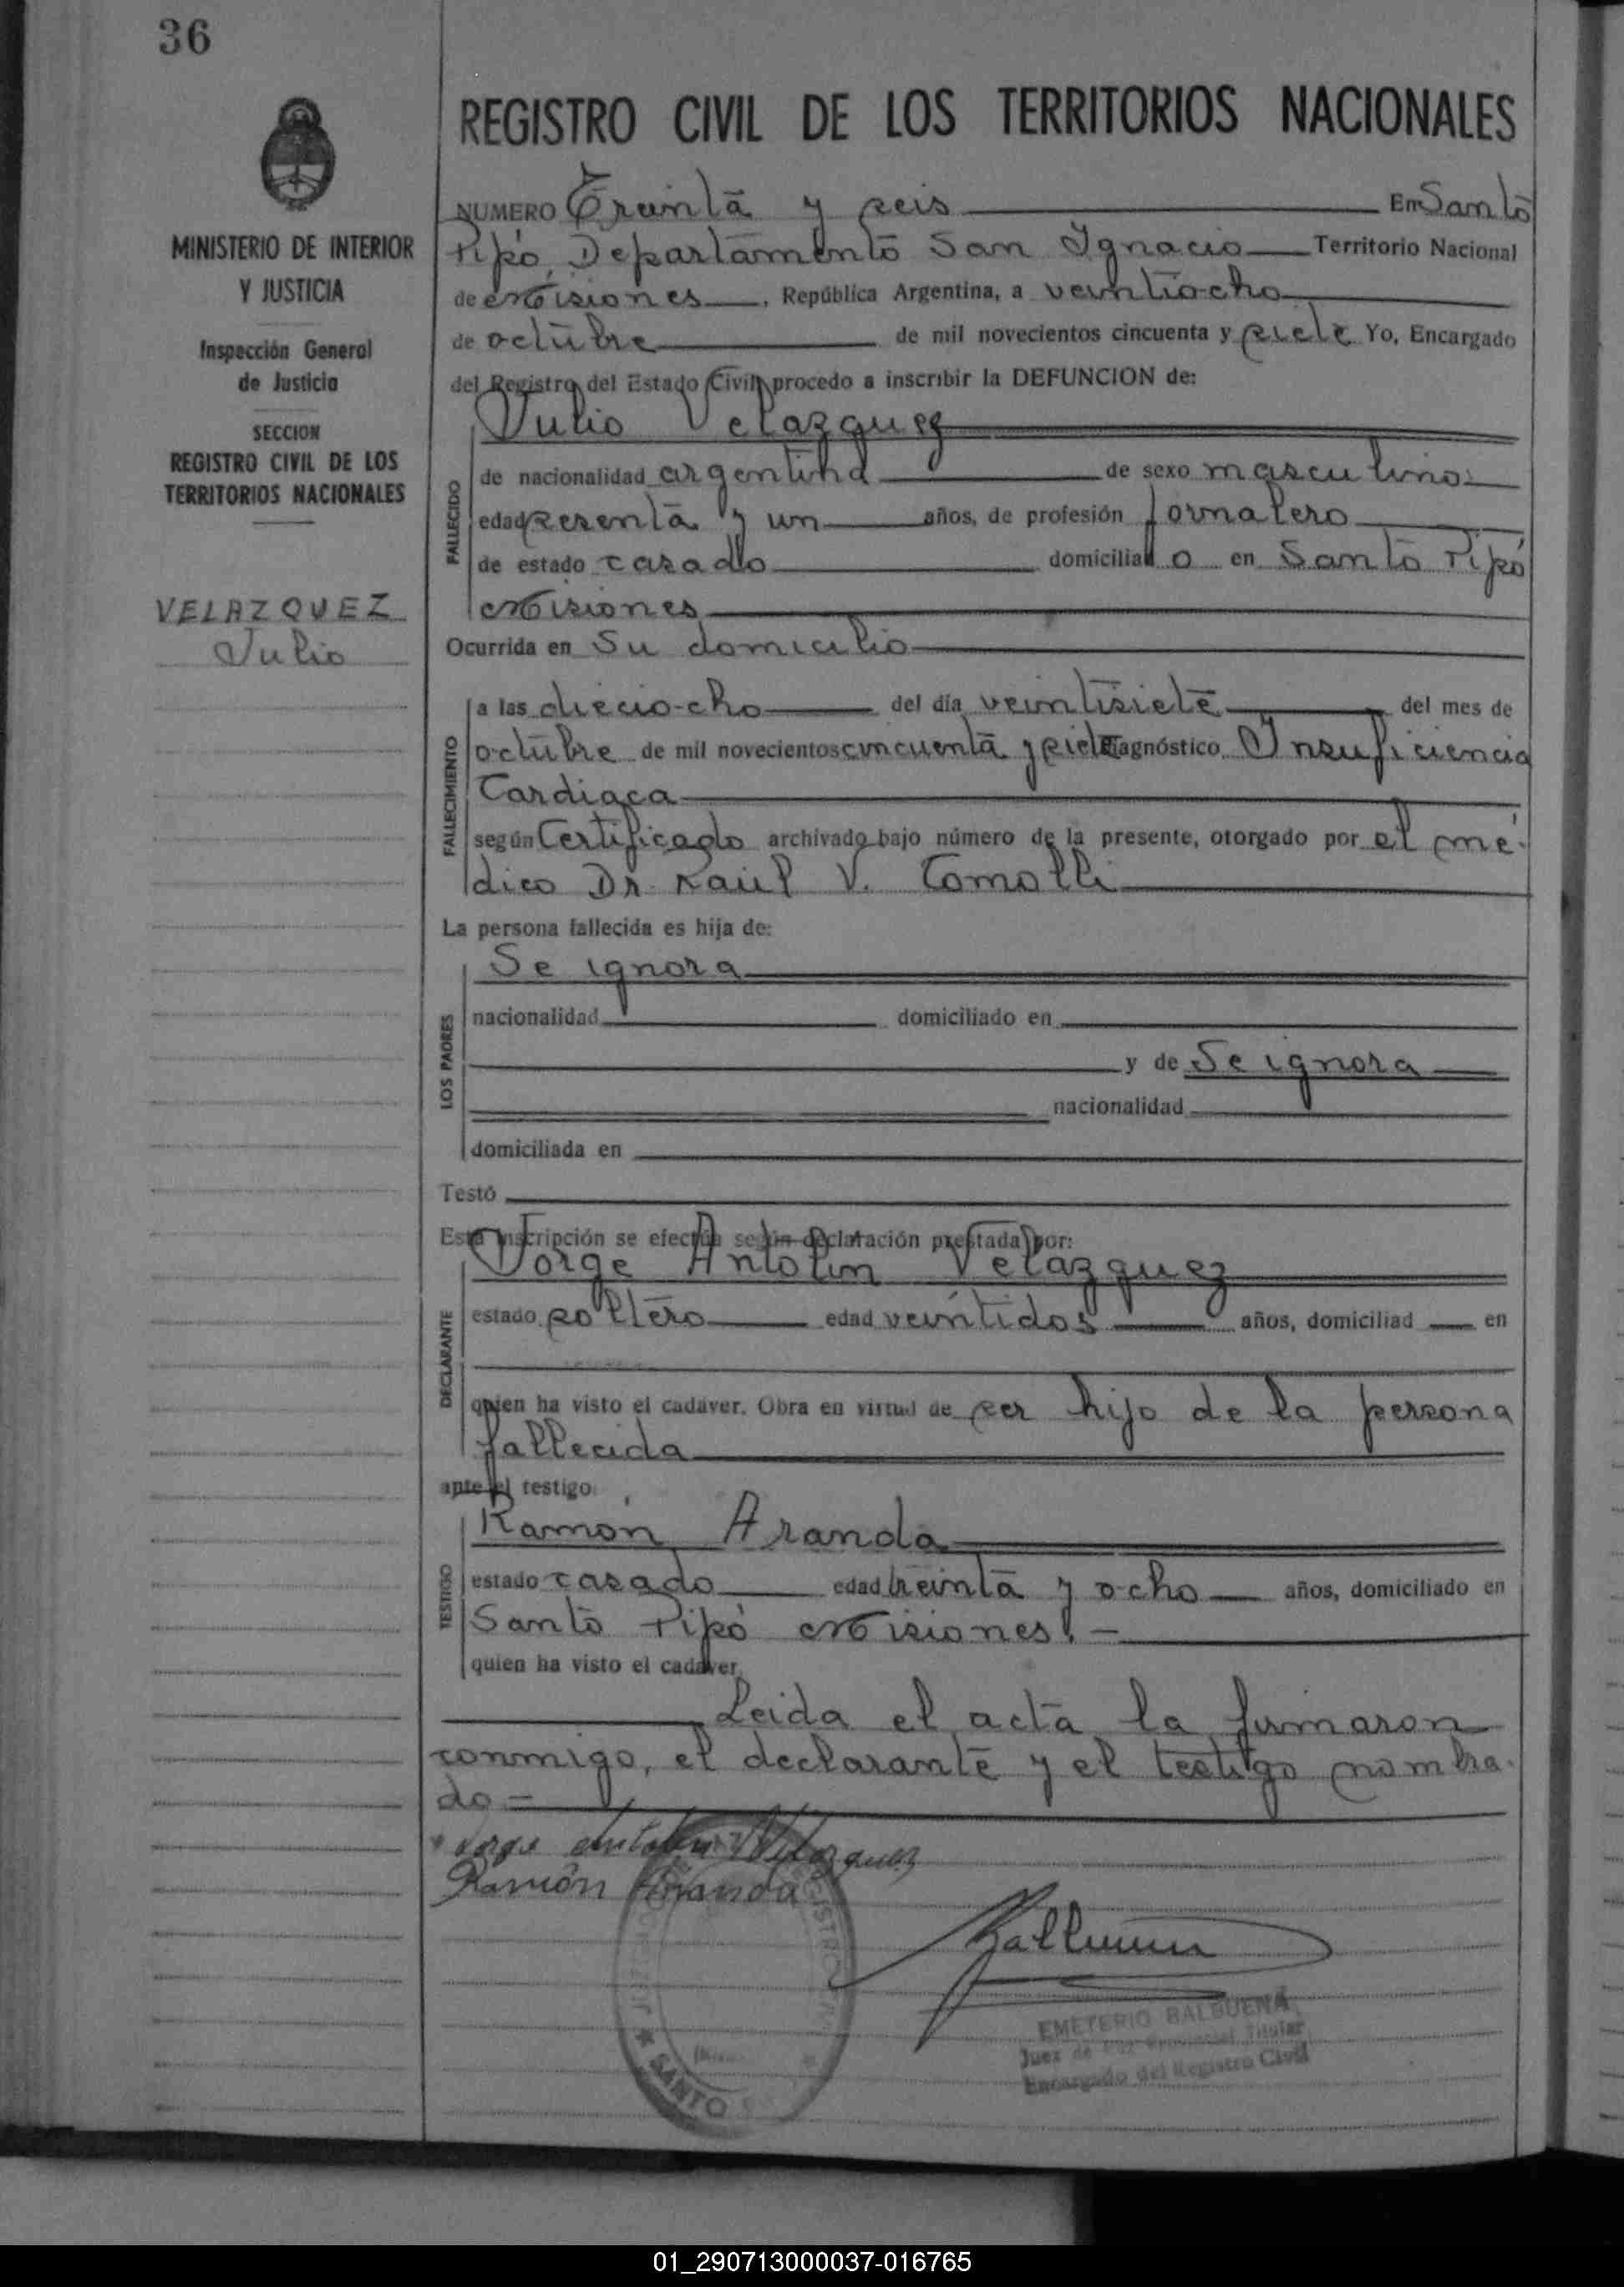 36
MINISTERIO DE INTERIOR
Y JUSTICIA
Inspección General
de Justicia
SECCION
REGISTRO CIVIL DE LOS
TERRITORIOS NACIONALES
VELAZQUEZ
Julio
REGISTRO CIVIL DE LOS TERRITORIOS NACIONALES
NUMERO Treinta y seis En Santo
Pipó, Departamento San Ignacio Territorio Nacional
de Misiones, República Argentina, a veintiocho
de octubre de mil novecientos cincuenta y siete Yo, Encargado
del Registro del Estado Civil, procedo a inscribir la DEFUNCION de:
Julio Velazquez
FALLECIDO
de nacionalidad argentina de sexo masculino
edad sesenta y un años, de profesión Jornalero
de estado casado domiciliado en Santo Pipó
Misiones
Ocurrida en Su domicilio
FALLECIMIENTO
a las dieciocho del día veintisiete del mes de
octubre de mil novecientos cincuenta y siete Diagnóstico Insuficiencia
Cardiaca
según Certificado archivado bajo número de la presente, otorgado por el mé-
dico Dr. Raúl V. Comolli
La persona fallecida es hija de:
LOS PADRES
Se ignora
nacionalidad domiciliado en
y de Se ignora
nacionalidad
domiciliada en
Testó
Esta inscripción se efectúa según declaración prestada por:
DECLARANTE
Jorge Antolin Velazquez
estado soltero edad veintidos años, domiciliad en
quien ha visto el cadáver. Obra en virtud de ser hijo de la persona
fallecida
ante el testigo
TESTIGO
Ramón Aranda
estado casado edad treinta y ocho años, domiciliado en
Santo Pipó Misiones.-
quien ha visto el cadáver.
Leida el acta la firmaron
conmigo, el declarante y el testigo nombra-
do-
Jorge Antolin Velazquez
Ramón Aranda
Balbuena
SANTO
EMETERIO BALBUENA
Juez de Paz Provincial Titular
Encargado del Registro Civil
01_290713000037-016765